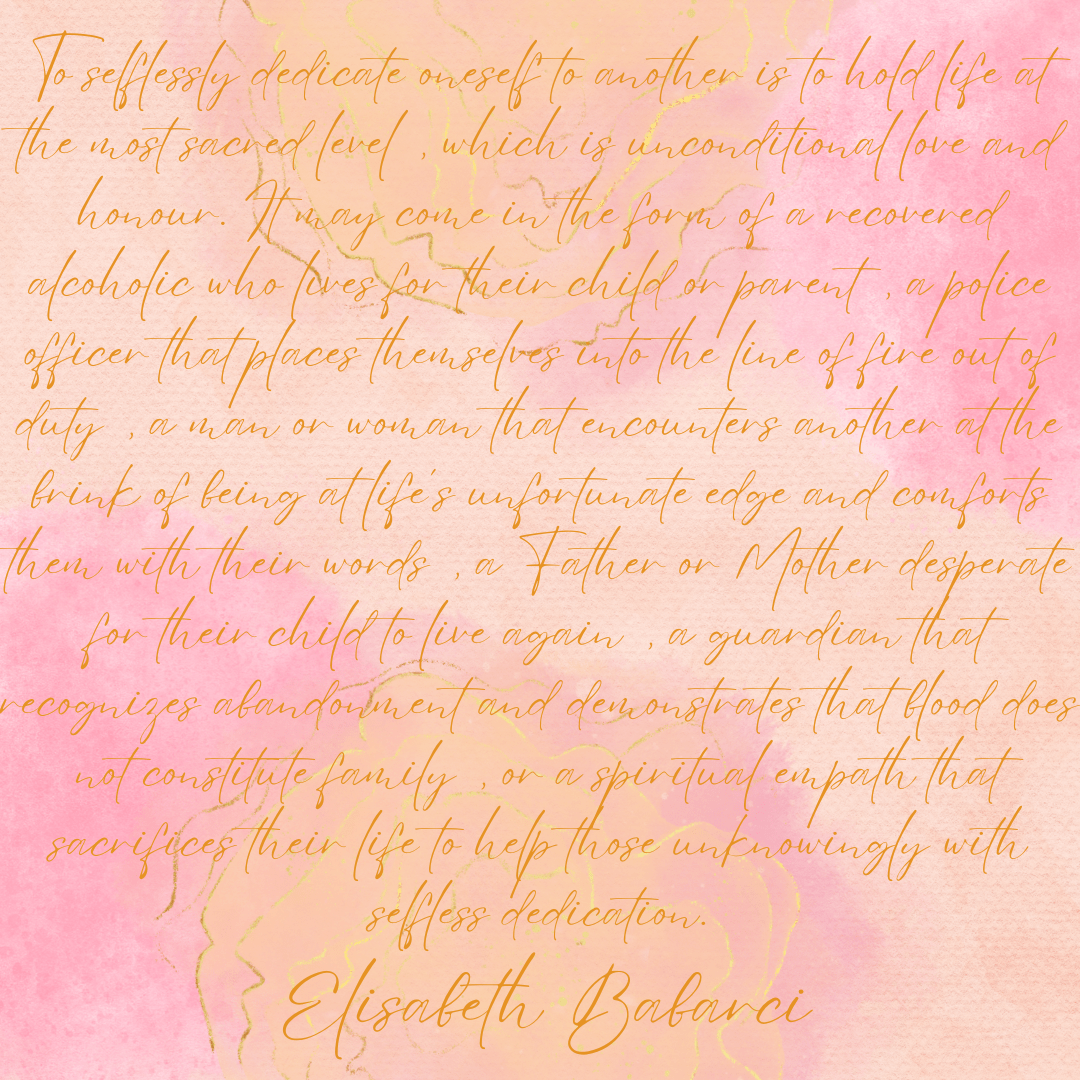 To selflessly dedicate oneself to another is to hold life at
the most sacred level , which is unconditional love and
honour. It may come in the form of a recovered
alcoholic who lives for their child or parent , a police
officer that places themselves into the line of fire out of
duty , a man or woman that encounters another at the
brink of being at life's unfortunate edge and comforts
them with their words , a Father or Mother desperate
for their child to live again , a guardian that
recognizes abandonment and demonstrates that blood does
not constitute family , or a spiritual empath that
sacrifices their life to help those unknowingly with
selfless dedication.
Elisabeth Babarci